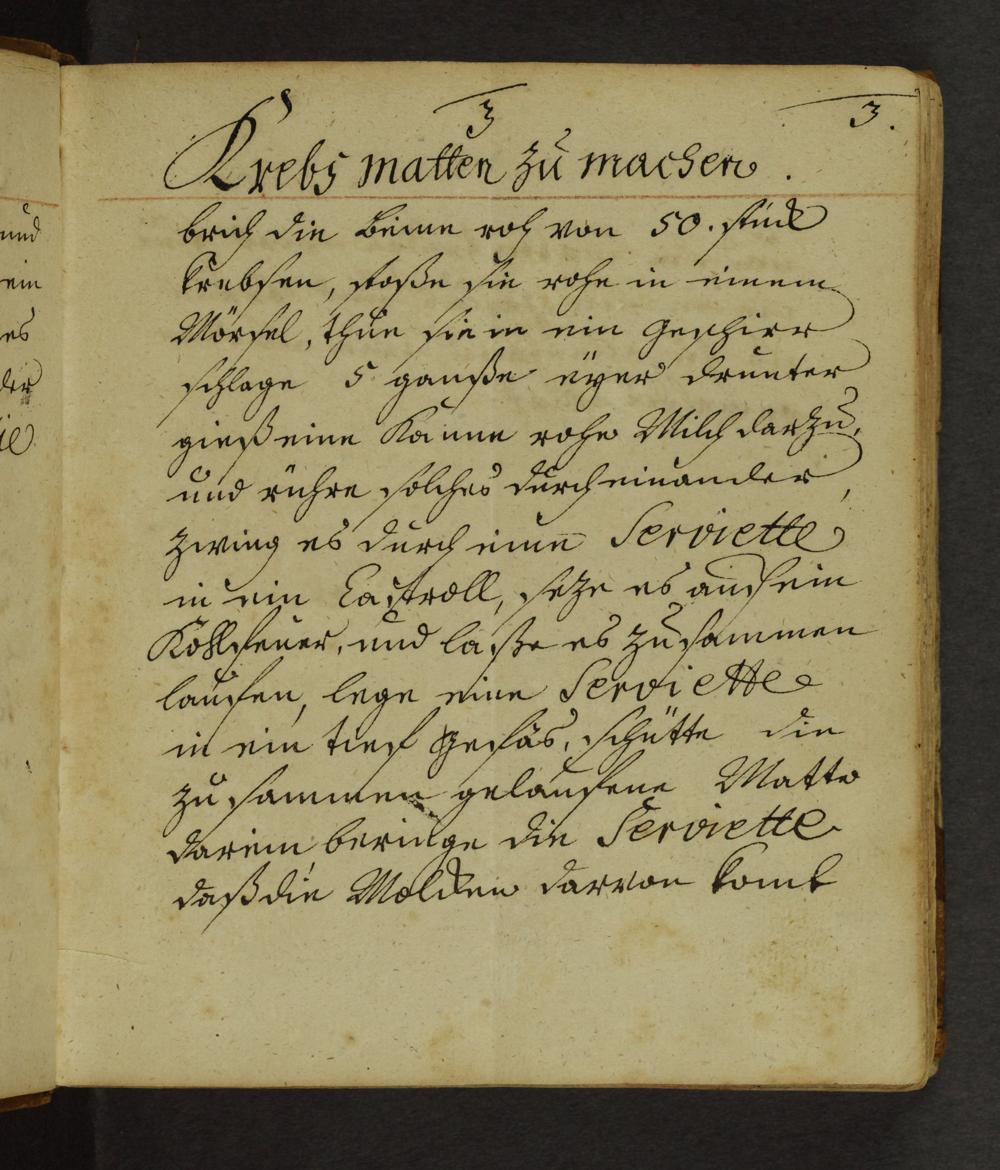 3
3.
Krebs matten zu machen.
brich die beine roh von 50. stück
Krebsen, stoße sie rohe in einem
Mörsel, thue sie in ein geschirr
schlage 5 ganße eyer drunter
gieß eine Kanne rohe Milch darzu,
und rühre solches durch einander,
zwing es durch eine Serviette
in ein Castroll, seze es auf ein
Kohlfeuer, und laße es zusammen
laufen, lege eine Serviette
in ein tief gefäs, schütte die
zusammen gelaufene Matte
darein, die Serviette
daß die Molcken darvon komt
und
ein
es
der